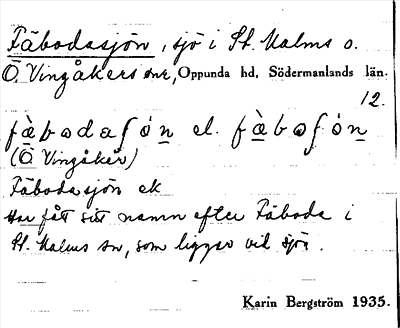 Fäbodasjön, sjö i St. Malms o.
Ö. Vingåkers snr, Oppunda hd, Södermanlands län.
12.
fä̀bodaʃón el. fä̀boʃón
(Ö Vingåker)
Fäbodasjön ek
Har fått sitt namn efter Fäboda i
St. Malms sn, som ligger vid sjön.
Karin Bergström 1935.